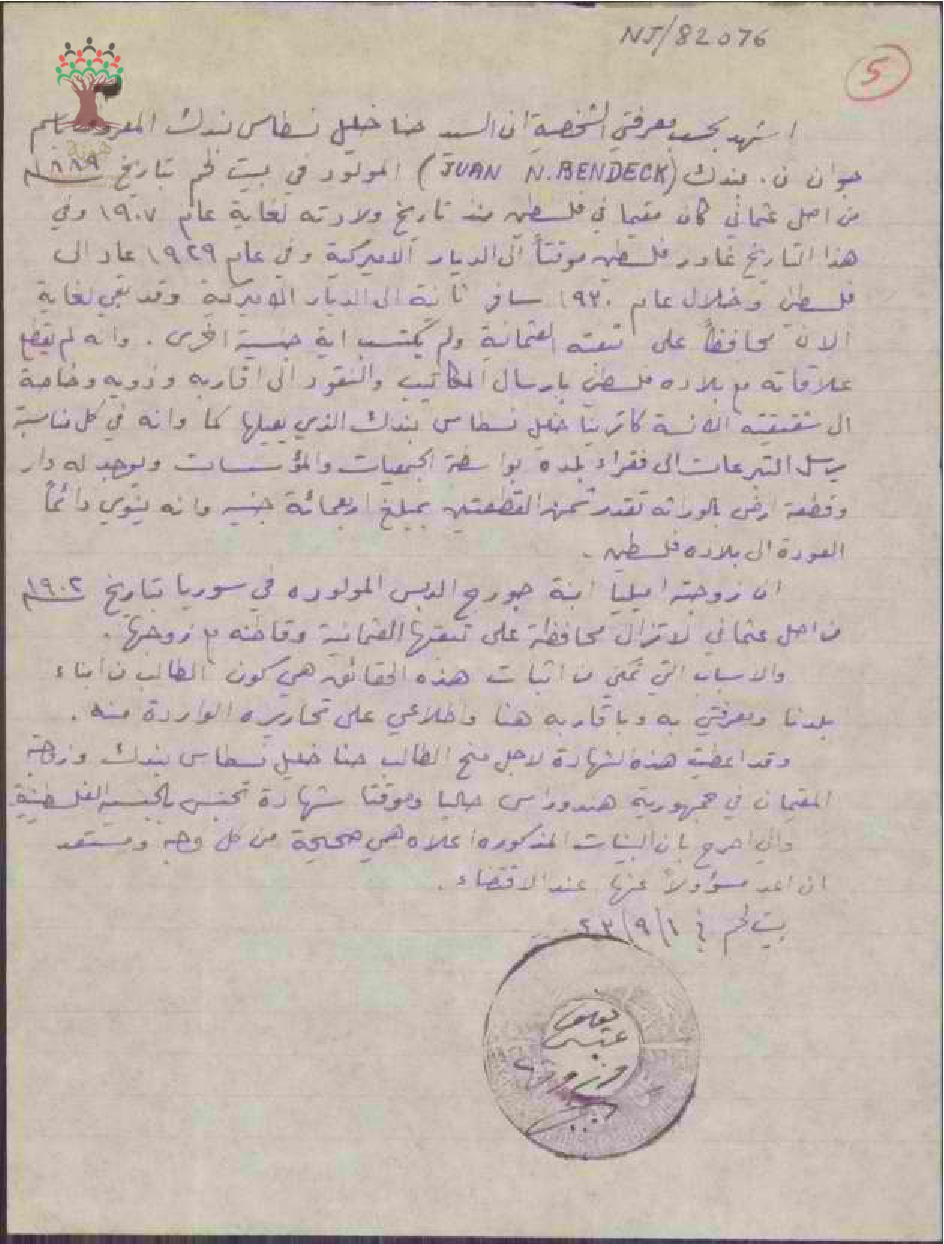 NJ/82076
5
اشهد بحسب معرفتي الشخصية ان السيد حنا خليل نسطاس بندك المعروف باسم
جوان ن. بندك (JUAN N. BENDECK) المولود في بيت لحم بتاريخ ١٨٨٩م
من اصل عثماني كان مقيما في فلسطين منذ تاريخ ولادته لغاية عام ١٩٠٧ وفي
هذا التاريخ غادر فلسطين موقتاً الى الديار الاميركية وفي عام ١٩٢٩ عاد الى
فلسطين وخلال عام ١٩٣٠ سافر ثانية الى الديار الاميركية وقد بقي لغاية
الان محافظاً على تبعته العثمانية ولم يكتسب اية جنسية اخرى . وانه لم يقطع
علاقاته مع بلاده فلسطين بارسال المكاتيب والنقود الى اقاربه وذويه وخاصة
الى شقيقته الانسة كاترينا خليل نسطاس بندك الذي يعيلها كما وانه في كل مناسبة
يرسل التبرعات الى فقراء بلده بواسطة الجمعيات والمؤسسات ويوجد له دار
وقطعة ارض بالوراثه تقدر ثمن القطعتين بمبلغ اربعمائة جنيه وانه ينوي دائماً
العودة الى بلاده فلسطين .
ان زوجته اميليا ابنة جورج الدبس المولوده في سوريا بتاريخ ١٩٠٢م
من اصل عثماني لا تزال محافظة على تبعتها العثمانية وقاطنه مع زوجها .
والاسباب التي تمكني من اثبات هذه الحقائق هي كون الطالب من ابناء
بلدنا ومعرفتي به وباقاربه هنا واطلاعي على تحاريره الواردة منه .
وقد اعطيت هذه الشهادة لاجل منح الطالب حنا خليل نسطاس بندك وزوجته
المقيمان في جمهورية هندوراس حاليا وموقتا شهادة تجنس بالجنسية الفلسطينية
واني اصرح بان البينات المذكوره اعلاه هي صحيحة من كل وجه ومستعد
ان اعد مسؤولاً عنها عند الاقتضاء .
بيت لحم في ١/٩/